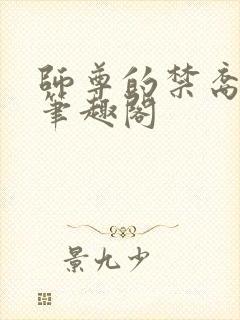 師尊的禁脔
筆趣閣
景九少